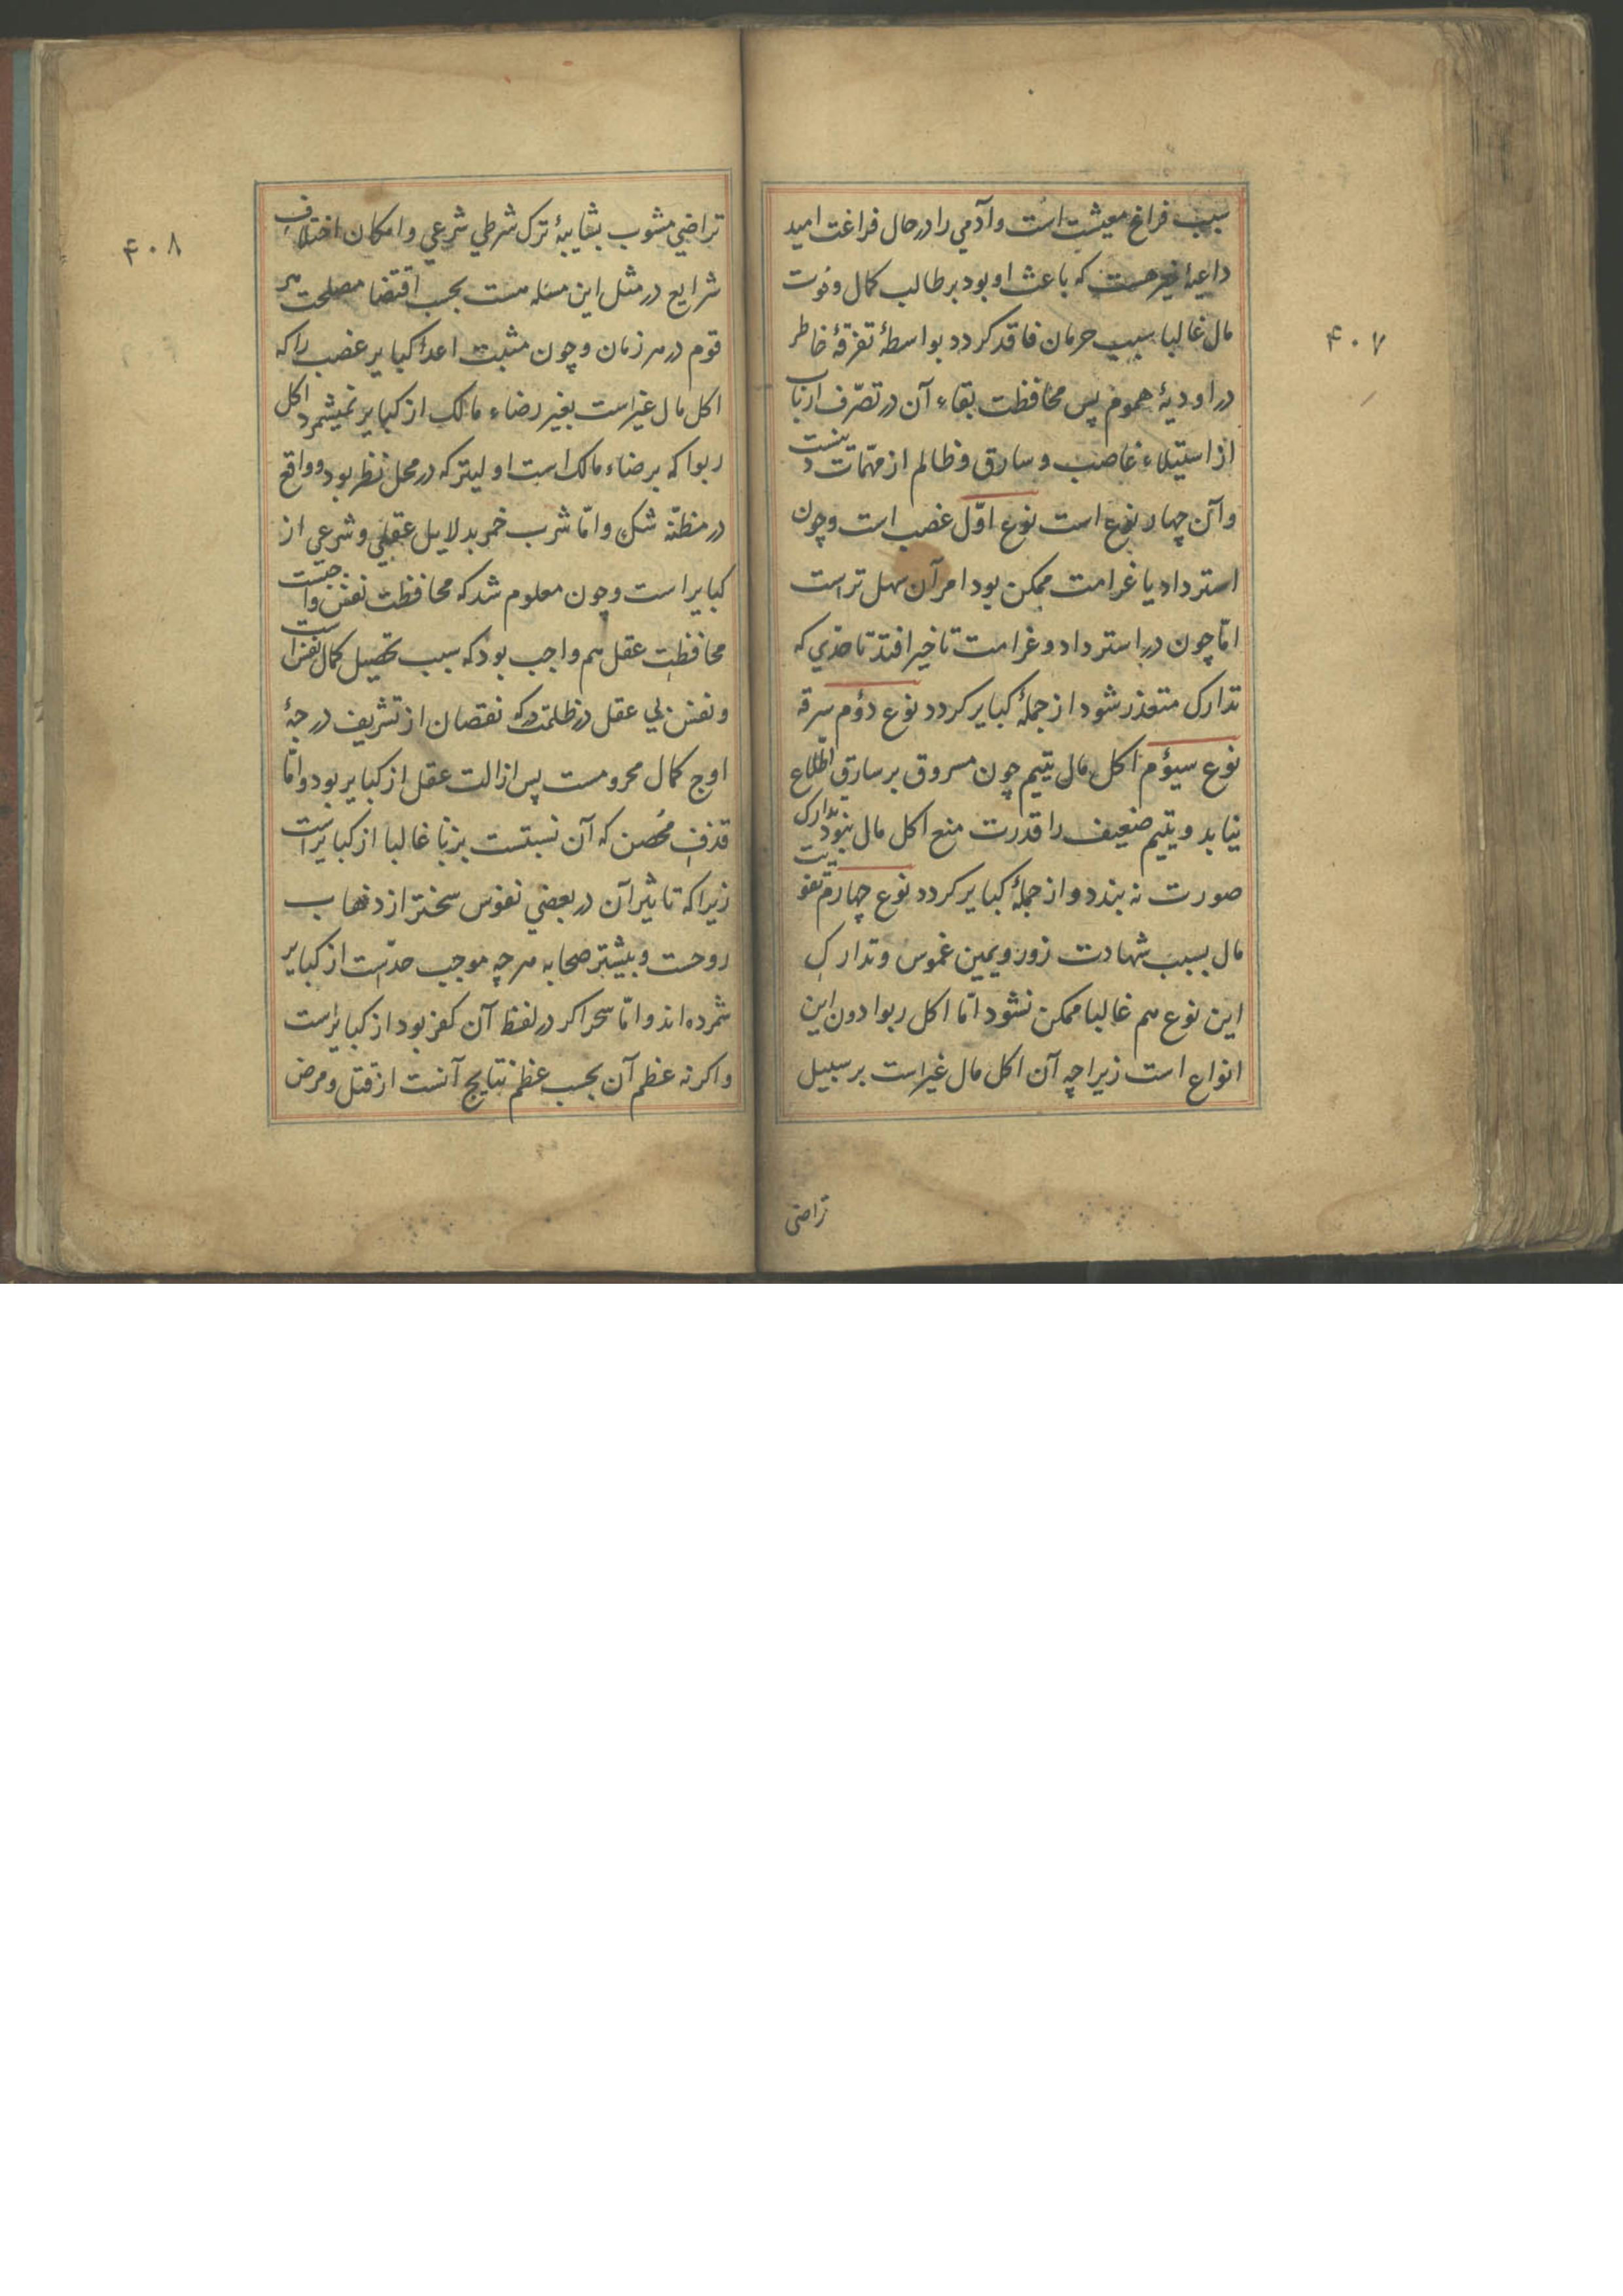 سبب فراغ معیشت است و آدمي را در حال فراغت امید
داعیهٔ خیر هست که باعث او بود بر طالب کمال و فوت
مال غالبا سبب حرمان فاقد کردد بواسطهٔ تفرقهٔ خاطر
در اودیهٔ هموم پس محافظت بقاء آن در تصرّف ارباب
از استیلاء غاصب و سارق و ظالم از مهمّات دینست
و آن چهار نوع است نوع اوّل غصب است و چون
استرداد یا غرامت ممکن بود امر آن سهل تر است
امّا چون در استرداد و غرامت تاخیر افتد تا حدّي که
تدارک متعذر شود از جملهٔ کبایر کردد نوع دوٌم سرقه
نوع سیوٌم اکل مال یتیم چون مسروق بر سارق اطّلاع
نیابد و یتیم ضعیف را قدرت منع اکل مال نبود تدارک
صورت نه بندد و از جملهٔ کبایر کردد نوع چهارم تفویت
مال بسبب شهادت زور و یمین غموس و تدارک
این نوع هم غالبا ممکن نشود امّا اکل ربوا دون این
انواع است زیرا چه آن اکل مال غیر است بر سبیل
تراضی
۴۰۷
تراضي مشوب بشایبهٔ ترک شرطي شرعي و امکان اختلاف
شرایع در مثل این مسٔله هست بحسب اقتضا مصلحت هر
قوم در هر زمان و چون مثبت اعداد کبایر غصب را که
اکل مال غیر است بغیر رضاء مالک از کبایر نمیشمرد اکل
ربوا که برضاء مالک است اولیتر که در محل نظر بود و واقع
در مظنّهٔ شک و امّا شرب خمر بدلایل عقلي و شرعي از
کبایر است و چون معلوم شد که محافظت نفس واجبست
محافظت عقل هم واجب بود که سبب تحصیل کمال نفس است
و نفس بي عقل در ظلمت درکهٔ نقصان از تشریف درجهٔ
اوج کمال محرومست پس ازالت عقل از کبایر بود و امّا
قذف محُصن که آن نسبتست بزنا غالبا از کبایر است
زیرا که تاثیر آن در بعضي نفوس سختر از ذهاب
روحست و بیشتر صحابه هر چه موجب حدّست از کبایر
شمرده اند و امّا سحر اکر در لفظ آن کفر بود از کبایر است
و اکر نه عظم آن بحسب عظم نتایج آنست از قتل و مرض
۴۰۸